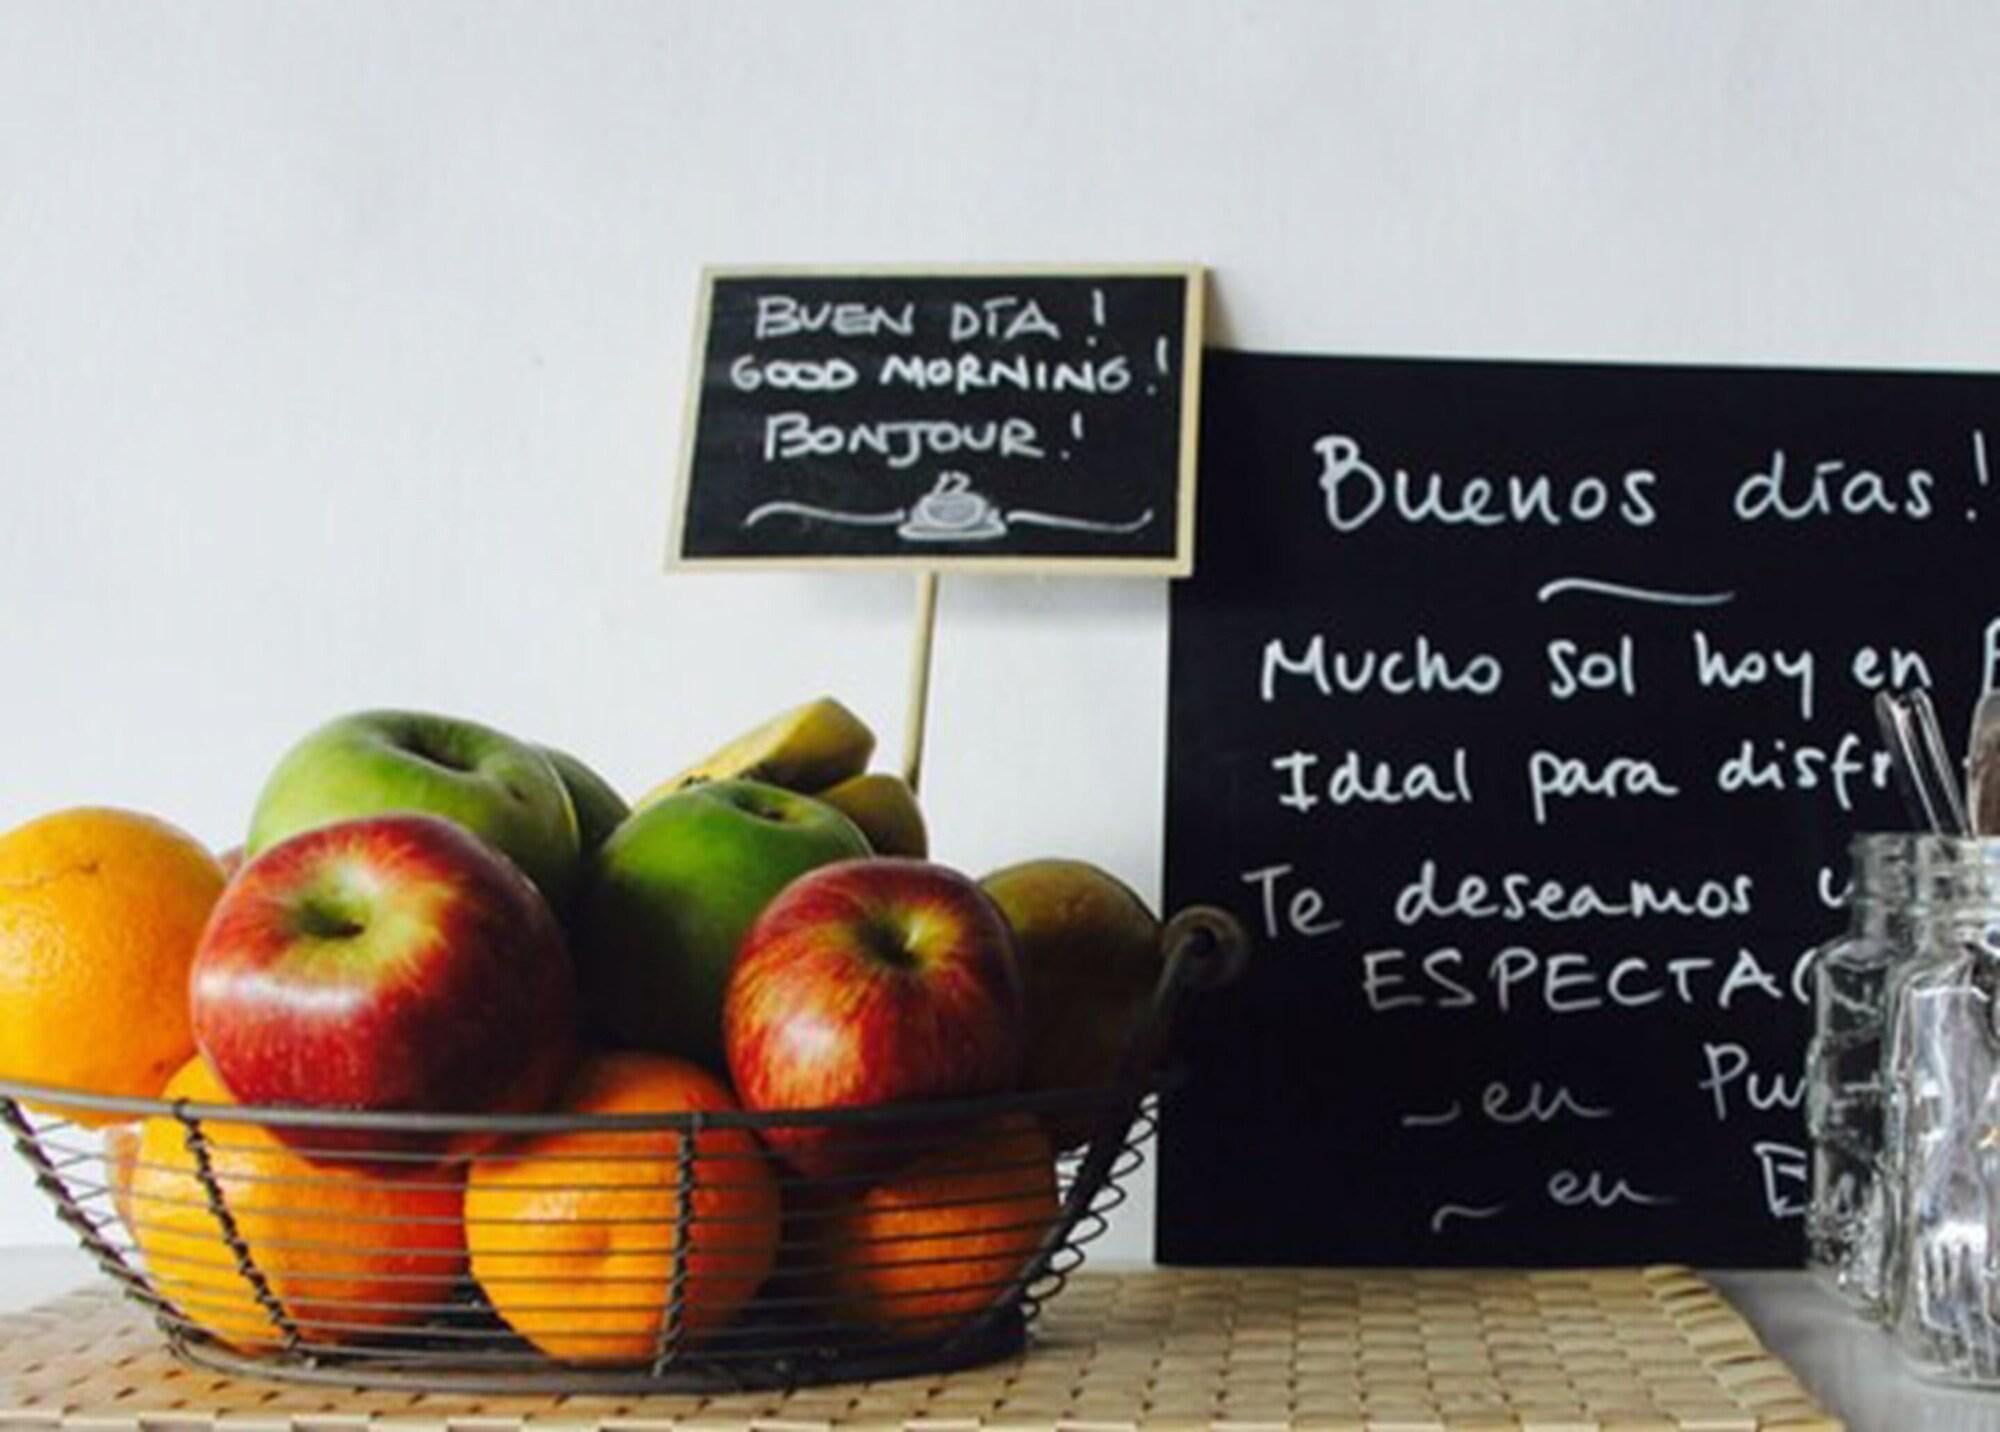 BUEN DÍA!
GOOD MORNING!
BONJOUR!
Buenos días!
Mucho sol hoy en
Ideal para
Te deseamos
en
en